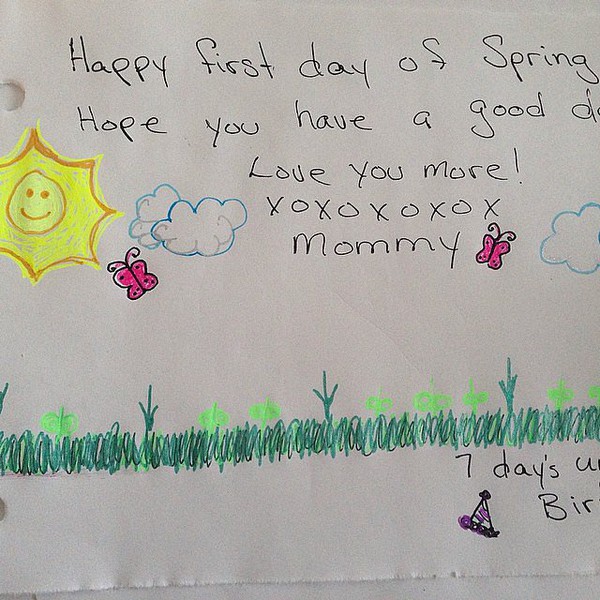 Happy first day of Spring
Hope you have a good
Love you more!
xoxoxoxox
Mommy
7 day's